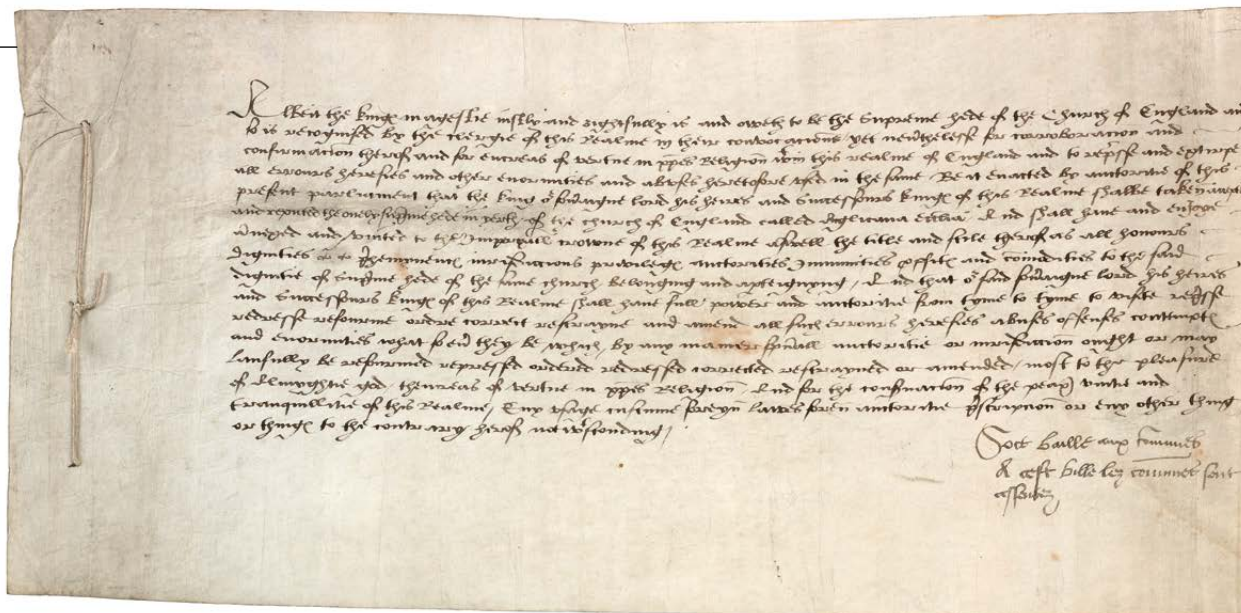 Albeit the kinges magestie iustly and rightfully is and oweth to be the supreme hede of the Church of England and
so is recognised by the clergie of this Realme in their convocacions yet nevthelesse for corroboracion and
confirmacion therof and for encreas of vertue in xpes Religion wtin this realme of England and to represse and extirpe
all errours heresies and other enormities and abuses heretofore used in the same Be it enacted by auctorite of this
present parliament that the king or soveraigne lord his heires and Successours kinges of this Realme shalbe taken accepted
and reputed the onely supreme hede in erth of the church of England called Anglicana ecclia And shall have and enjoye
annexed and united to the Imperyall crowne of this Realme aswell the title and stile therof as all honours
Dignities preemynences iurisdiccions privileges auctorities Immunities profites and comodities to the said
dignitie of supreme hede of the same church belonging and apperteynyng And that or said soveraigne lord his heires
and Successours kinges of this Realme shall have full power and auctoritie from tyme to tyme to visite represse
redresse refourme ordre correct restrayne and amend all such errours heresies abuses offenses contemptes
and enormities what so ever they be which by any maner spirituall auctoritie or iurisdiccion ought or may
laufully be refourmed repressed ordered redressed corrected restrayned or amended most to the pleasure
of Almyghtie god thencreas of vertue in xpes Religion And for the conservacion of the peax unitie and
tranquillitie of this Realme Any usage custume foreyn lawes foreyn auctoritie prescripcion or eny other thing
or thinges to the contrary herof notwtstonding
Soit baille aux Comunes
A cest bille lez comunes sont
assentez